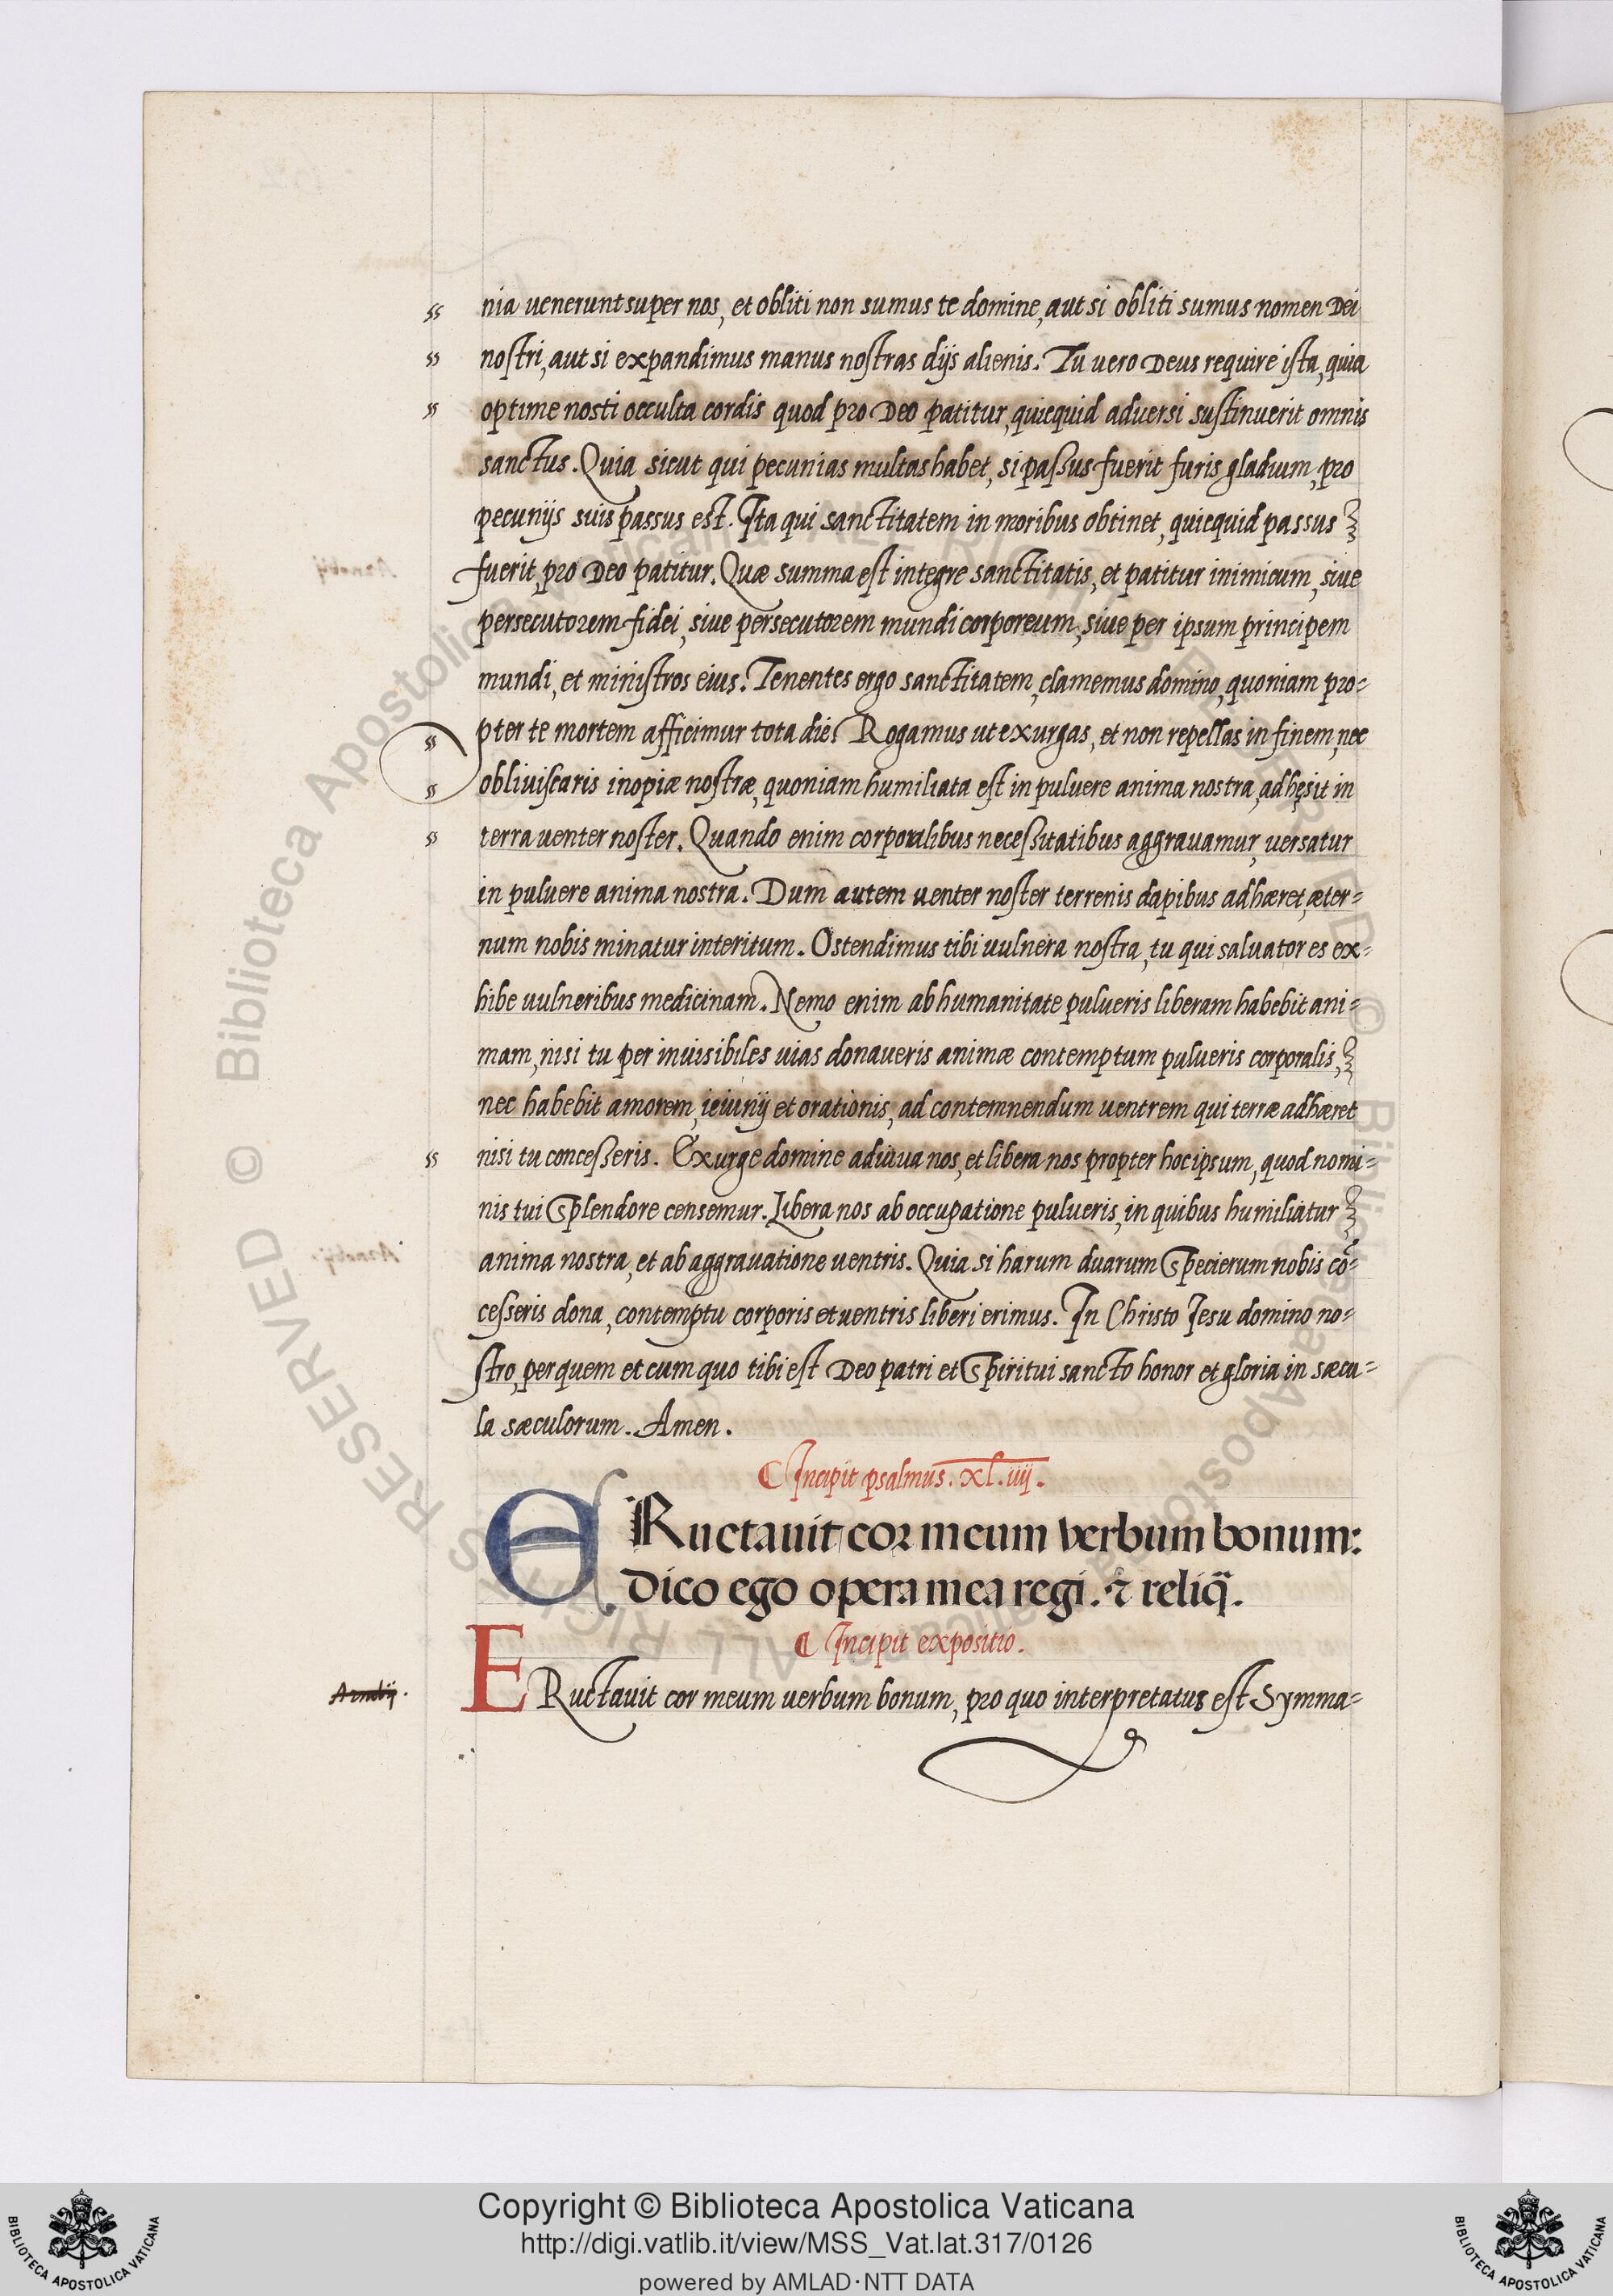 nia uenerunt super nos, et obliti non sumus te domine, aut si obliti sumus nomen Dei
nostri, aut si expandimus manus nostras dijs alienis. Tu uero Deus require ista, quia
optime nosti occulta cordis quod pro Deo patitur, quicquid aduersi sustinuerit omnis
sanctus. Quia sicut qui pecunias multas habet, si passus fuerit furis gladium, pro
pecunijs suis passus est. Ita qui sanctitatem in moribus obtinet, quicquid passus
fuerit, pro Deo patitur. Quæ summa est integre sanctitatis, et patitur inimicum, siue
persecutorem fidei, siue persecutorem mundi corporeum, siue per ipsum principem
mundi, et ministros eius. Tenentes ergo sanctitatem, clamemus domino, quoniam pro=
pter te mortem afficimur tota die. Rogamus ut exurgas, et non repellas in finem, nec
obliuiscaris inopiæ nostræ, quoniam humiliata est in puluere anima nostra, adhęsit in
terra uenter noster. Quando enim corporalibus necessitatibus aggrauamur, uersatur
in puluere anima nostra. Dum autem uenter noster terrenis dapibus adhæret, æter=
num nobis minatur interitum. Ostendimus tibi uulnera nostra, tu qui saluator es ex=
hibe uulneribus medicinam. Nemo enim ab humanitate pulueris liberam habebit ani=
mam, nisi tu per inuisibiles uias donaueris animæ contemptum pulueris corporalis,
nec habebit amorem, ieiunij et orationis, ad contemnendum uentrem qui terræ adhæret
nisi tu concesseris. Exurge domine adiuua nos, et libera nos propter hoc ipsum, quod nomi=
nis tui splendore censemur. Libera nos ab occupatione pulueris, in quibus humiliatur
anima nostra, et ab aggrauatione uentris. Quia si harum duarum specierum nobis cō=
cesseris dona, contemptu corporis et uentris liberi erimus. In Christo Jesu domino no=
stro, per quem et cum quo tibi est Deo patri et Spiritui sancto honor et gloria in sæcu=
la sæculorum. Amen.
Incipit psalmus. xl.iiij.
ERuctauit cor meum verbum bonum:
dico ego opera mea regi. ⁊ reliq̄.
Incipit expositio.
ERuctauit cor meum uerbum bonum, pro quo interpretatus est Symma=
Arnobij.
© Biblioteca Apostolica Vaticana ALL RIGHTS RESERVED © Biblioteca Apostolica Vaticana ALL RIGHTS RESERVED
Copyright © Biblioteca Apostolica Vaticana
http://digi.vatlib.it/view/MSS_Vat.lat.317/0126
powered by AMLAD·NTT DATA
BIBLIOTECA APOSTOLICA VATICANA
BIBLIOTECA APOSTOLICA VATICANA